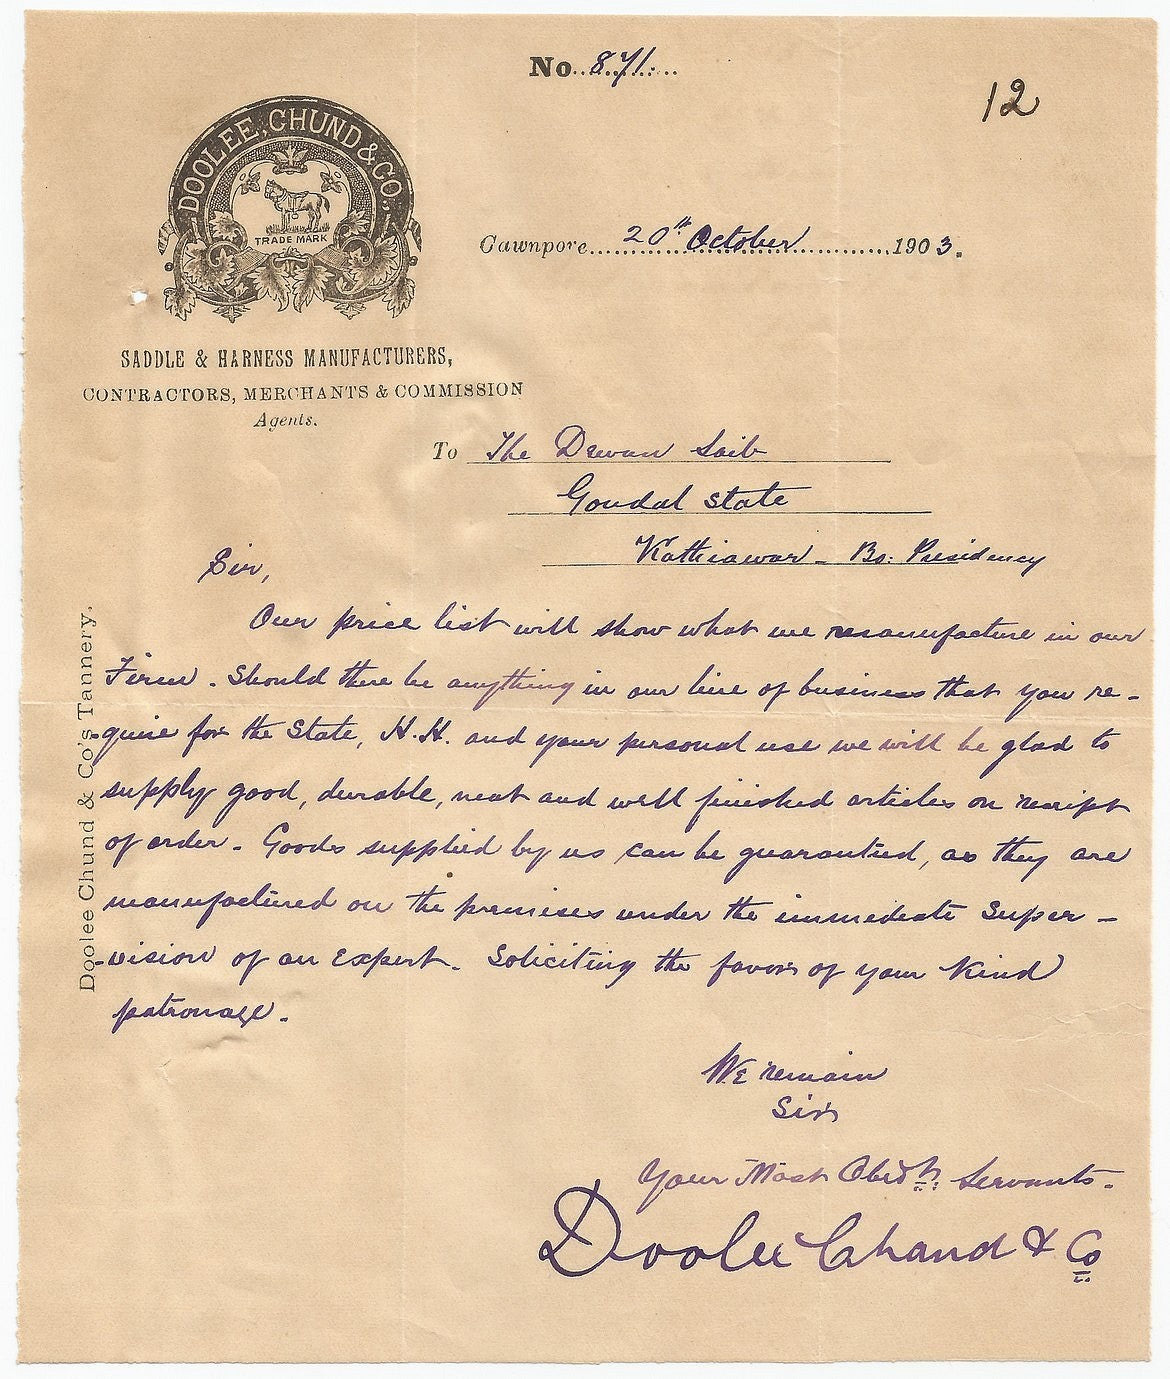 No. 871.
12
DOOLEE, CHUND & CO.,
TRADE MARK
Cawnpore 20th October 1903.
SADDLE & HARNESS MANUFACTURERS,
CONTRACTORS, MERCHANTS & COMMISSION
Agents.
To The Dewan Saib
Gondal State
Kathiawar - Bo: Presidency
Sir,
Our price list will show what we manufacture in our
Firm. Should there be anything in our line of business that you re-
-quire for the State, H.H. and your personal use we will be glad to
supply good, durable, neat and well finished articles on receipt
of order. Goods supplied by us can be guarantied, as they are
manufactured on the premises under the immediate Super-
-vision of an Expert. Soliciting the favor of your Kind
patronage.
We remain
Sir
Your Most Obedt: Servants.
Doolee Chand & Co
Doolee Chund & Co's Tannery.